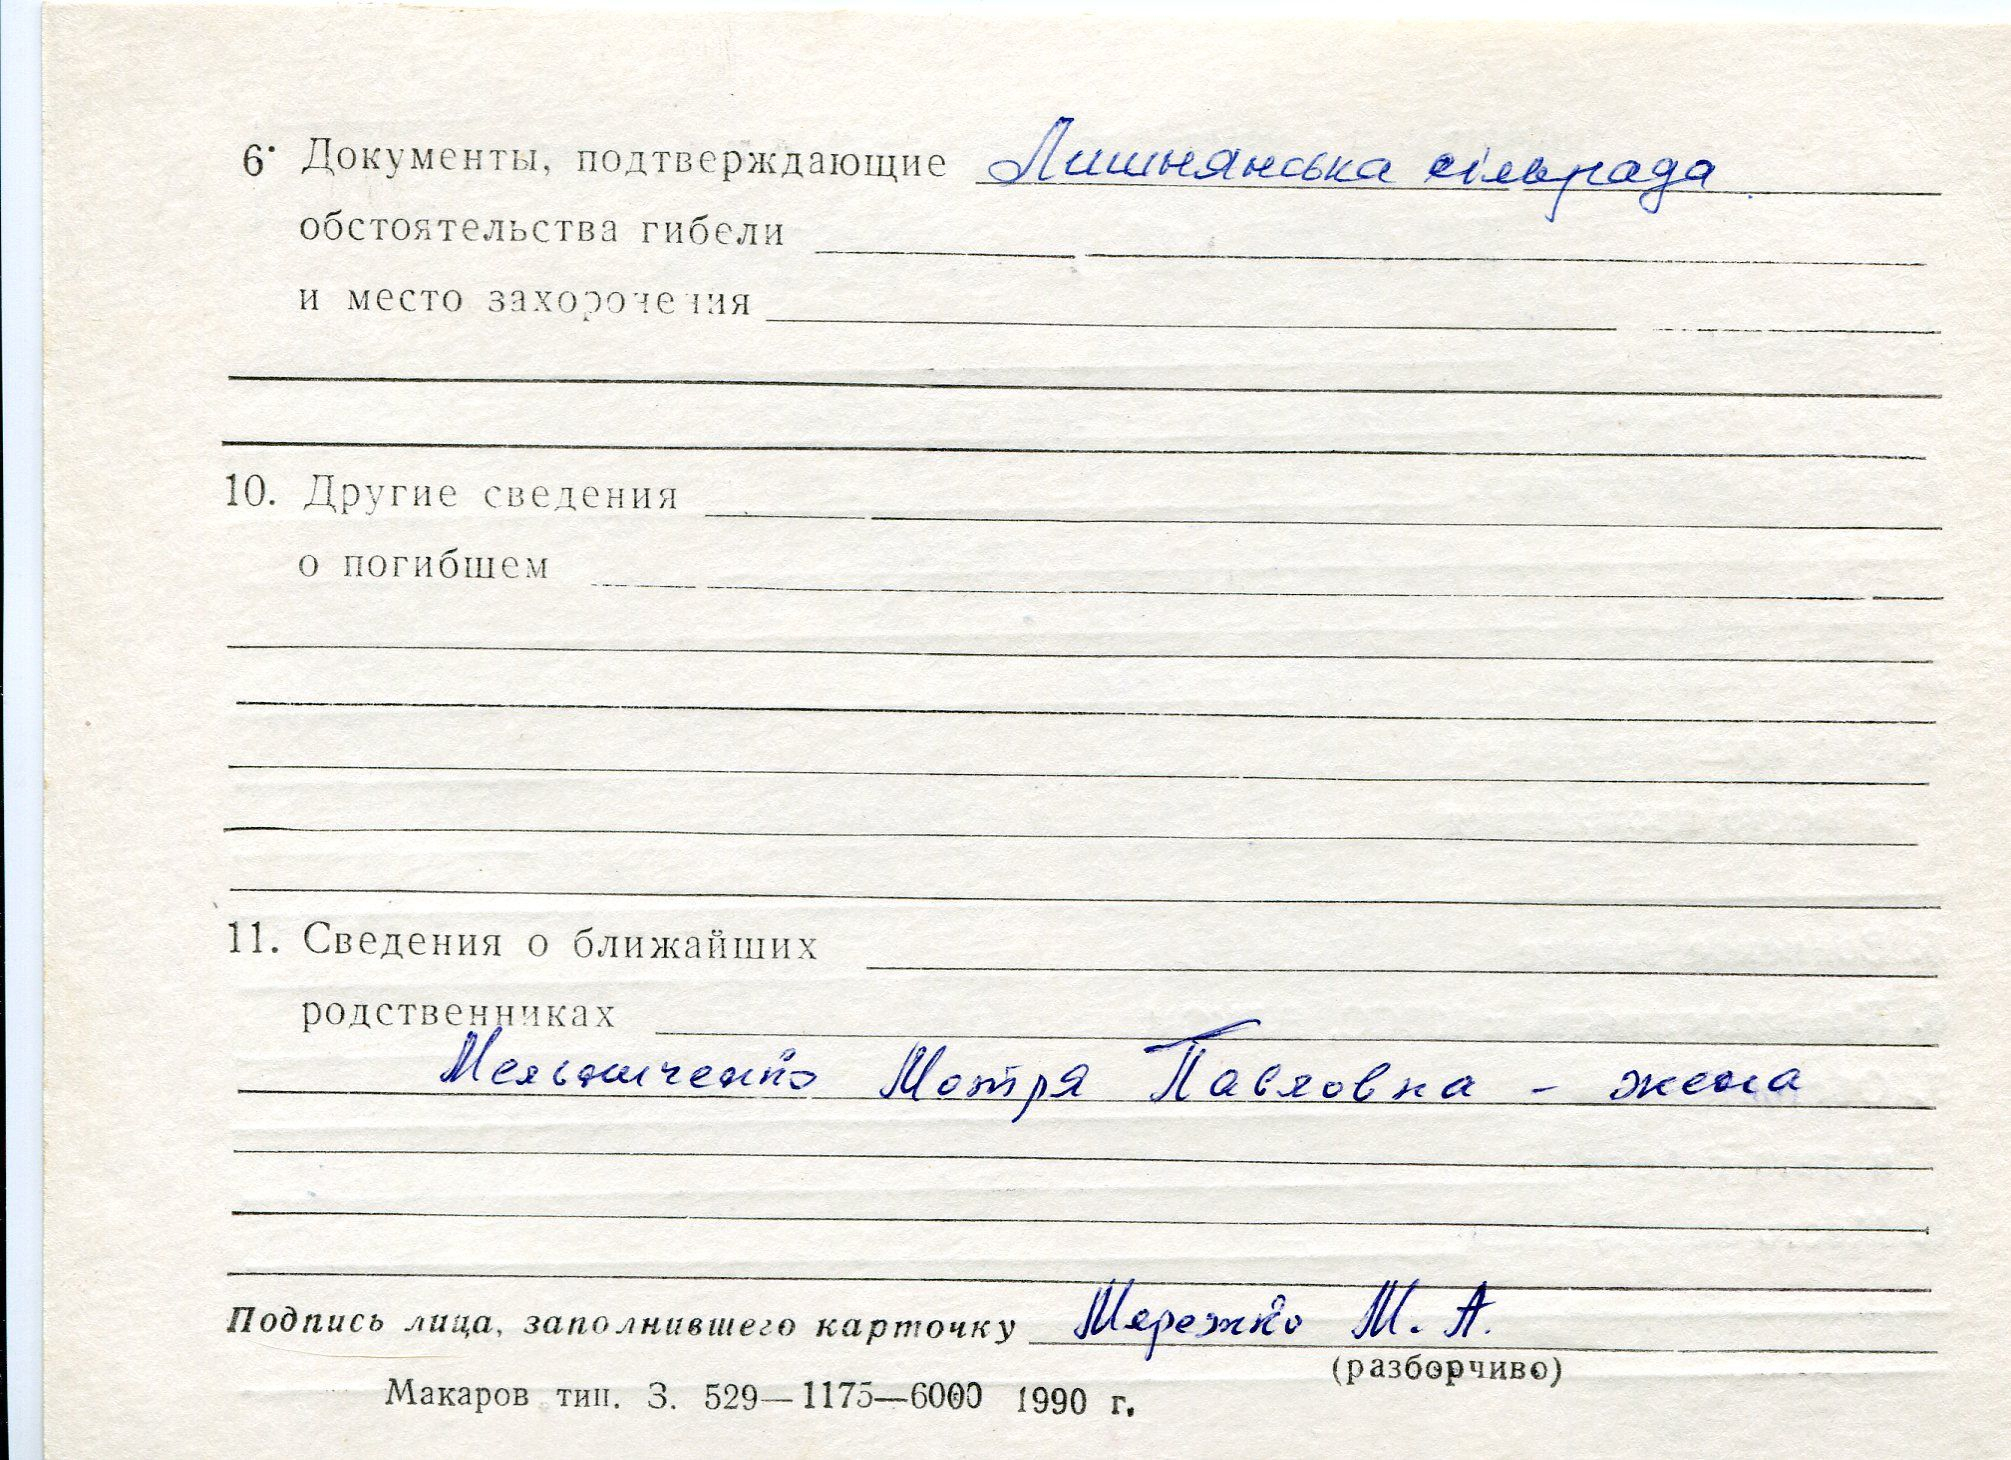 6. Документы, подтверждающие Лишнянська сільрада
обстоятельства гибели
и место захоронения
10. Другие сведения
о погибшем
11. Сведения о ближайших
родственниках
Мельниченко Мотря Павловна - жена
Подпись лица, заполнившего карточку Мережко М. А.
(разборчиво)
Макаров тип. З. 529—1175—6000 1990 г.